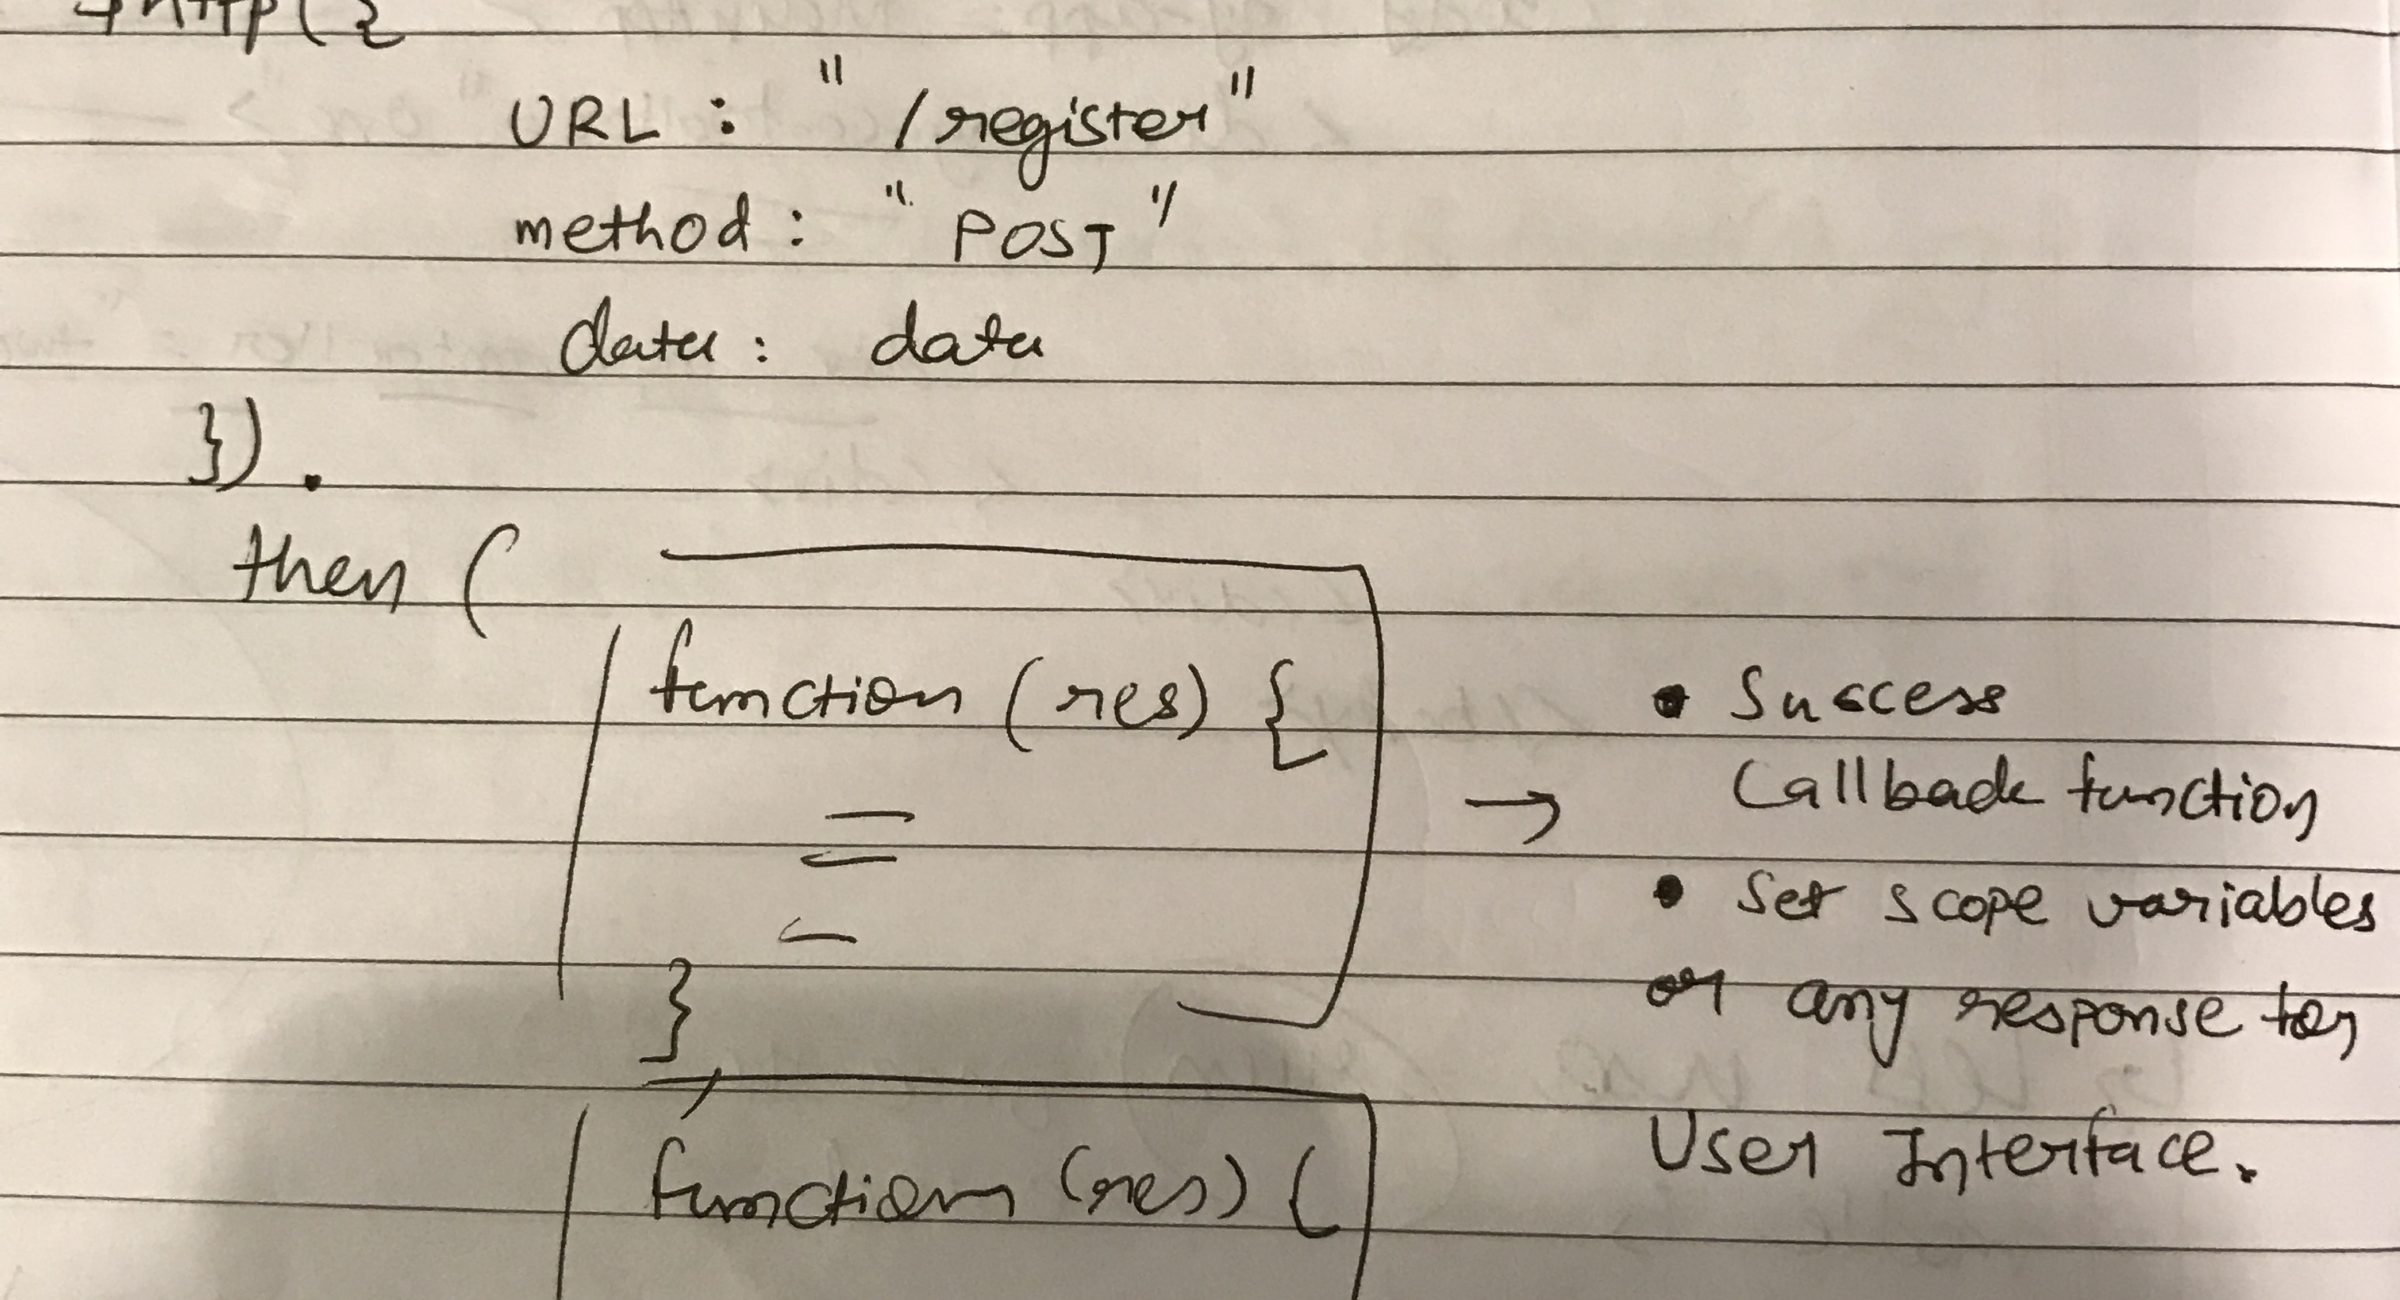 $http({
URL : "/register"
method : "POST"
data : data
}).
then (
function (res) {
},
→ • Success
Callback function
• Set scope variables
or any response for
User Interface.
function (res) {